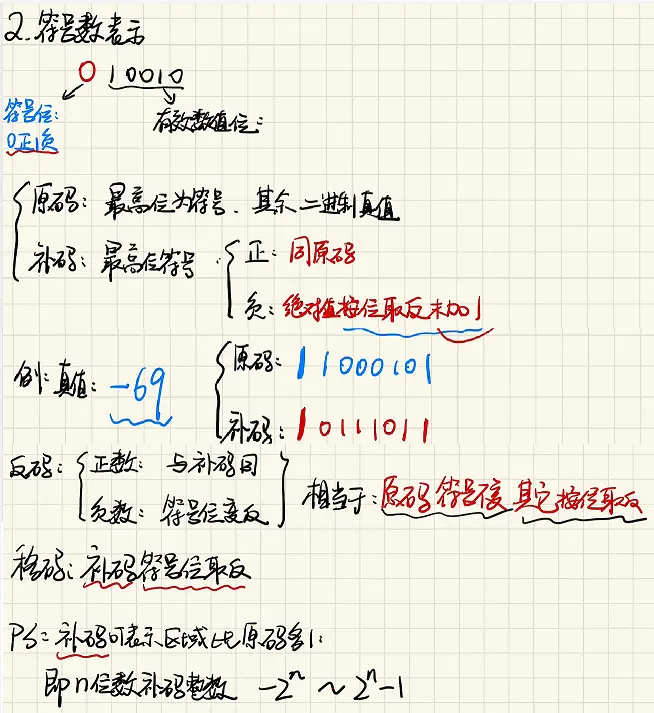 2.符号数表示
0 10010
符号位:
有效数值位:
0正1负
原码: 最高位为符号、其余二进制真值
补码: 最高位符号. 正: 同原码
负: 绝对值按位取反末加1
例: 真值: -69 原码: 11000101
补码: 10111011
反码: 正数: 与补码同
负数: 符号位变反
相当于: 原码符号不变 其它按位取反
移码: 补码符号位取反
PS: 补码可表示区域比原码多1:
即n位数补码整数 -2ⁿ ~ 2ⁿ-1